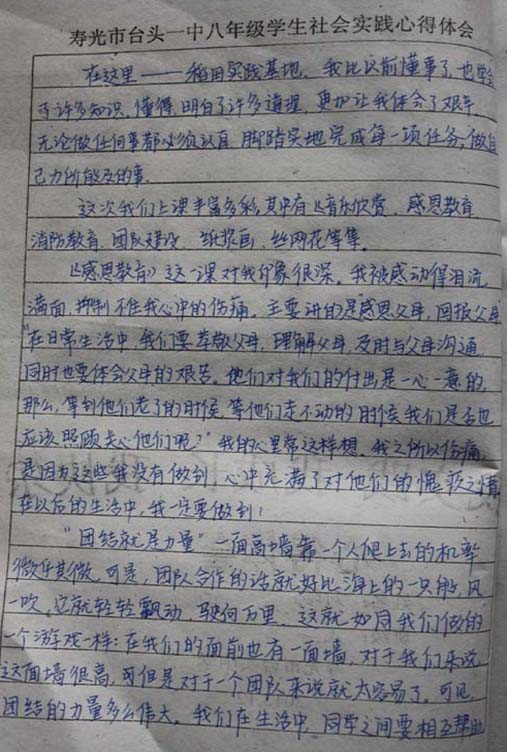 寿光市台头一中八年级学生社会实践心得体会
在这里——稻田实践基地，我比以前懂事了，也学会
了许多知识，懂得、明白了许多道理，更加让我体会了艰辛，
无论做任何事都必须认真，脚踏实地完成每一项任务，做自
己力所能及的事。
这次我们上课丰富多彩，其中有《音乐欣赏、感恩教育、
消防教育、团队建设、纸浆画、丝网花等等。
《感恩教育》这一课对我印象很深。我被感动得泪流
满面，抑制不住我心中的伤痛。主要讲的是感恩父母，回报父母
"在日常生活中，我们要孝敬父母，理解父母，及时与父母沟通，
同时也要体会父母的艰苦。他们对我们的付出是一心一意的，
那么，等到他们老了的时候，等他们走不动的时候我们是否也
应该照顾关心他们呢？"我的心里常这样想。我之所以伤痛，
是因为这些我没有做到，心中充满了对他们的愧疚之情
在以后的生活中，我一定要做到！
"团结就是力量"一面高墙靠一个人爬上去的机率
微乎其微，可是，团队合作的话就好比海上的一只船，风
一吹，它就轻轻飘动，驶向万里。这就如同我们做的
一个游戏一样：在我们的面前也有一面墙，对于我们来说
这面墙很高，可但是对于一个团队来说就太容易了。可见，
团结的力量多么伟大。我们在生活中，同学之间要相互帮助